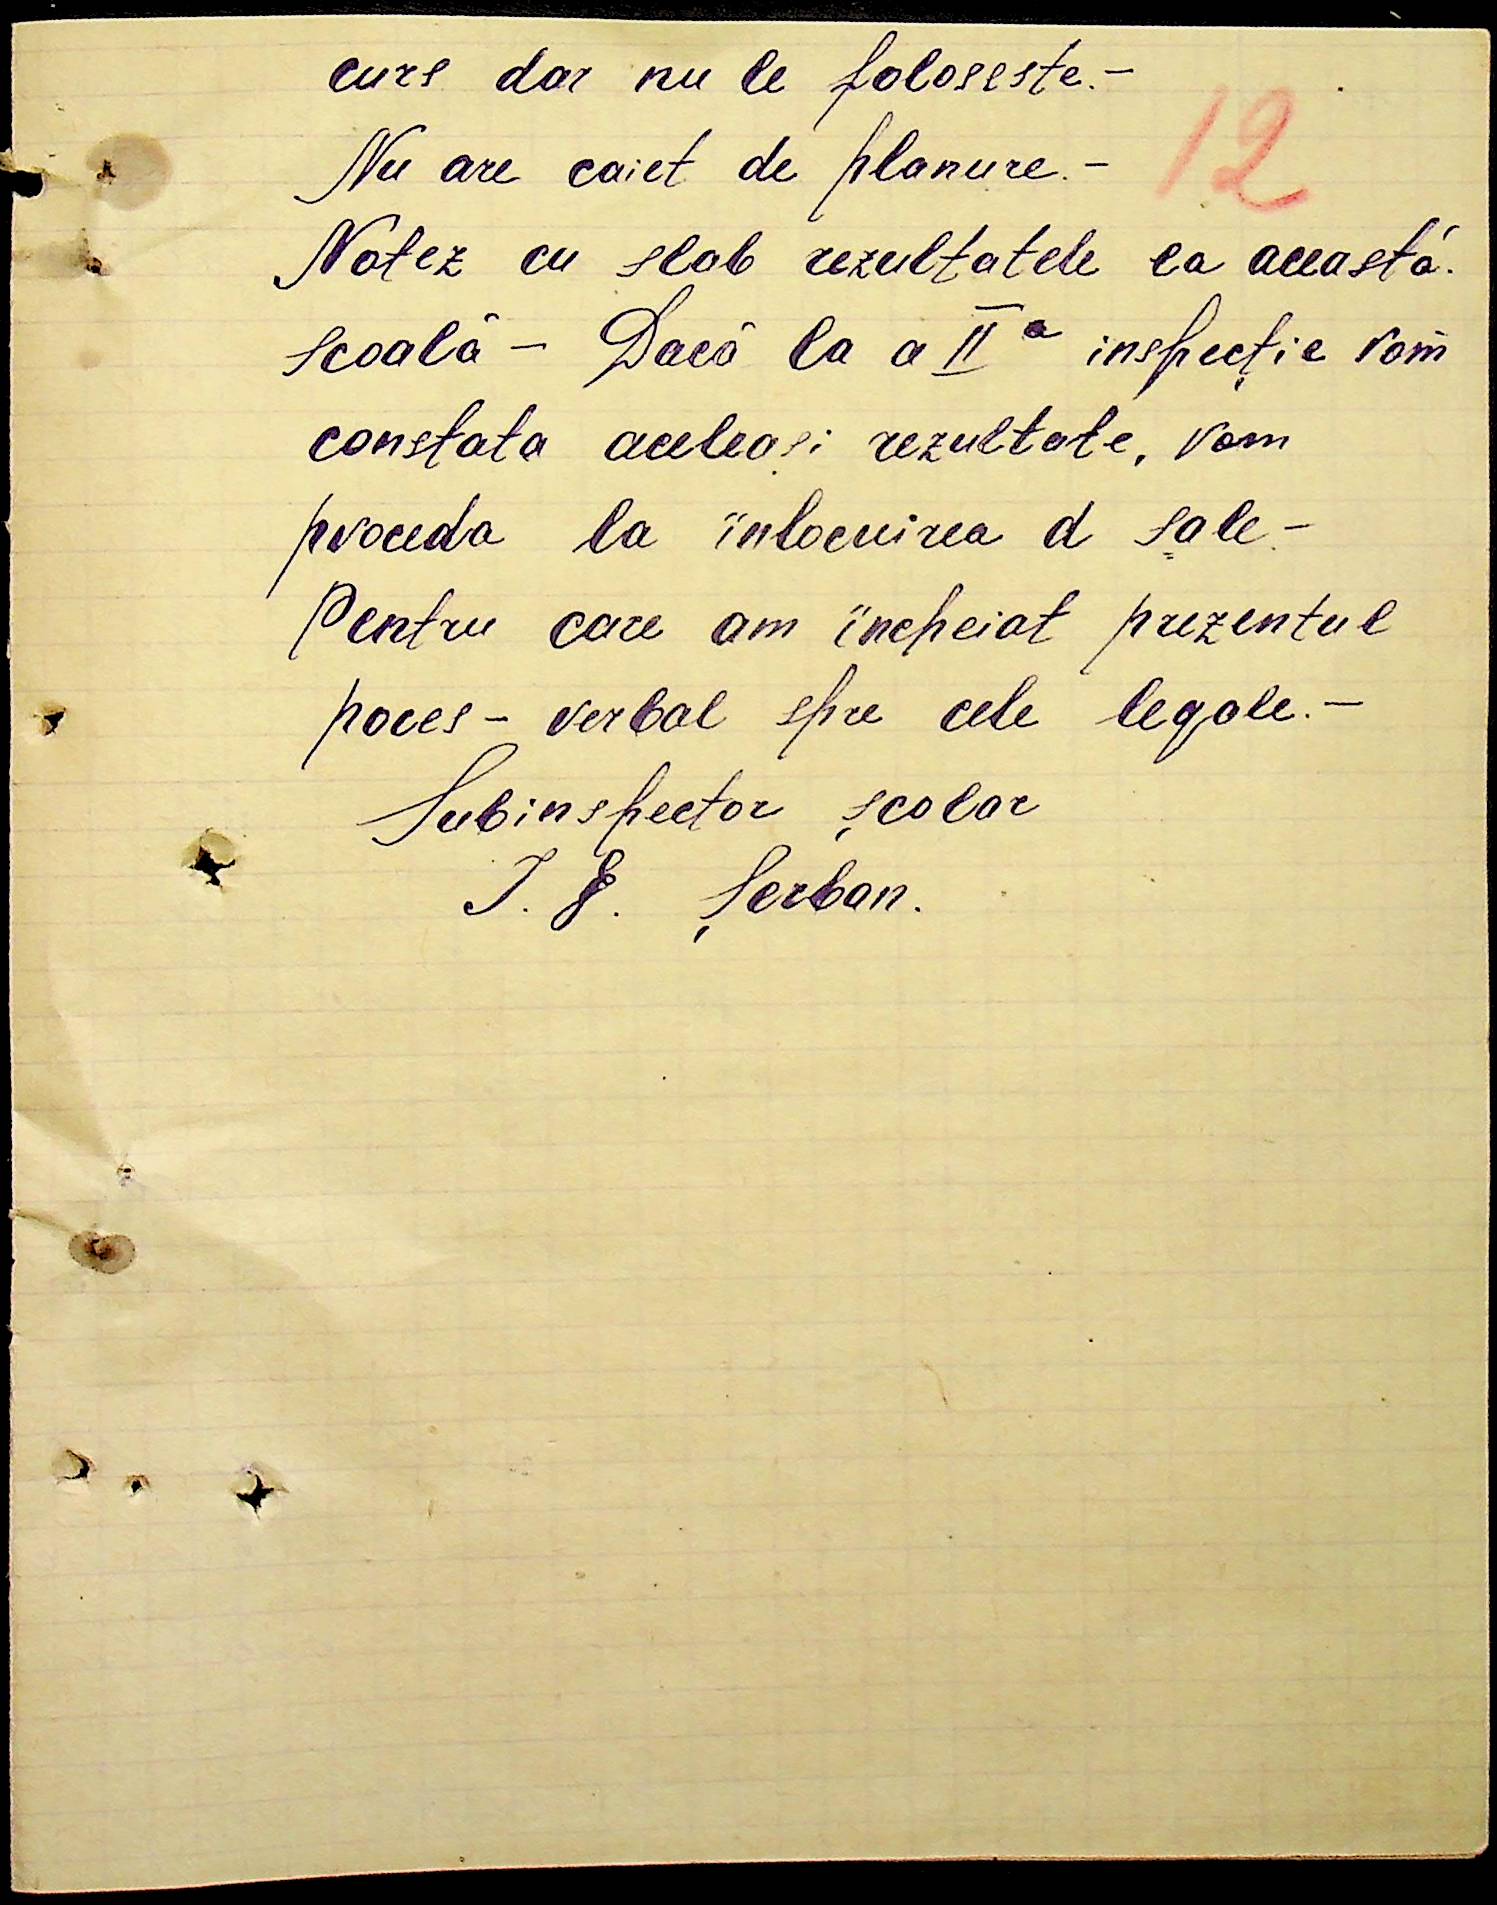 curs dar nu le foloseste.-
12
Nu are caiet de planure.-
Notez cu slab rezultatele la această
scoală - Dacă la a IIa inspecție vom
constata aceleași rezultate, vom
proceda la înlocuirea d sale.-
Pentru care am încheiat prezentul
poces-verbal spre cele legale.-
Subinspector școlar
I. E. Șerban.